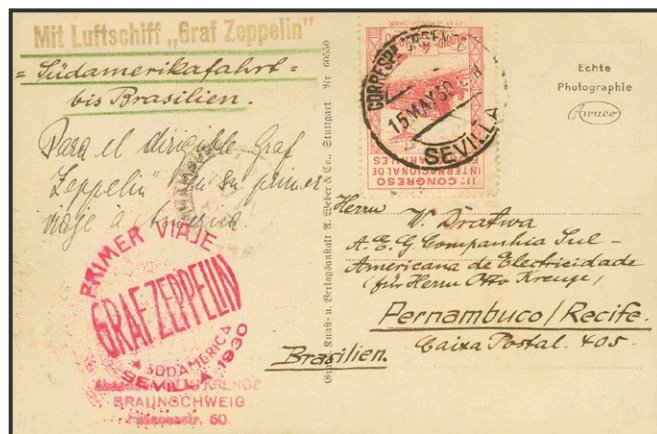 Mit Luftschiff „Graf Zeppelin"
= Südamerikafahrt =
bis Brasilien.
Para el dirigible „Graf
Zeppelin" en su primer
viaje à America.
PRIMER VIAJE
GRAF ZEPPELIN
SUDAMERICA
SEVILLA 1930
KRENGE
BRAUNSCHWEIG
60.
Graph. Kunst- u. Verlagsanstalt A. Weber & Co., Stuttgart Nr 60550
CORRESP URGENCIA
15 MAY 30
SEVILLA
IIº CONGRESO
INTERNACIONAL DE
FERROCARRILES
Echte
Photographie
Herrn
V. Dratwa
A. E. G Companhia Sul-
Americana de Electricidade
(für Herrn Otto Krenge)
Pernambuco / Recife.
Brasilien.
Caixa Postal. 405.